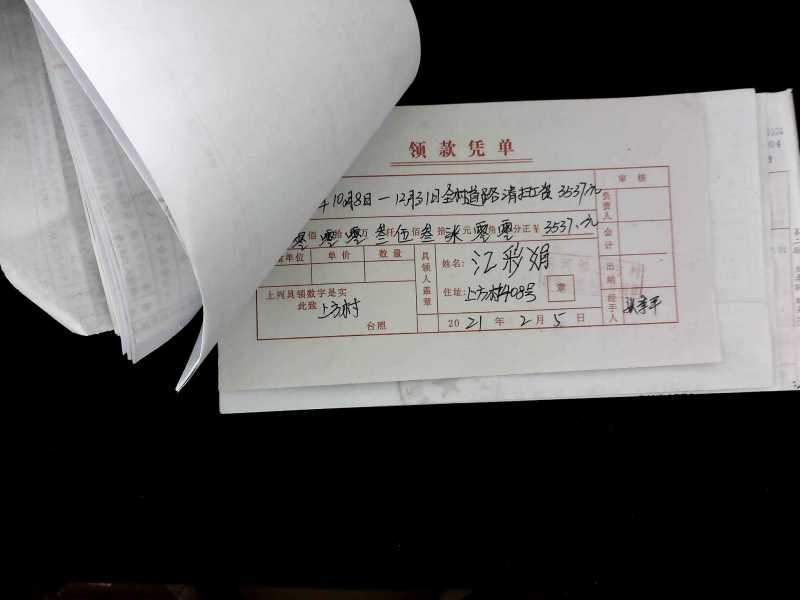 领款凭单
年10月8日一12月31日全村道路清扫工资3537.元
零 佰 零 拾 零 万 叁 仟 伍 佰 叁 拾 柒 元 零 角 零 分正¥ 3537.元
单位 单价 数量
上列具领数字是实
此致 上方村
台照
具领人盖章
姓名: 江彩娟
住址: 上方村408号 章
2021年2月5日
审核
负责人
会计
出纳
经手人